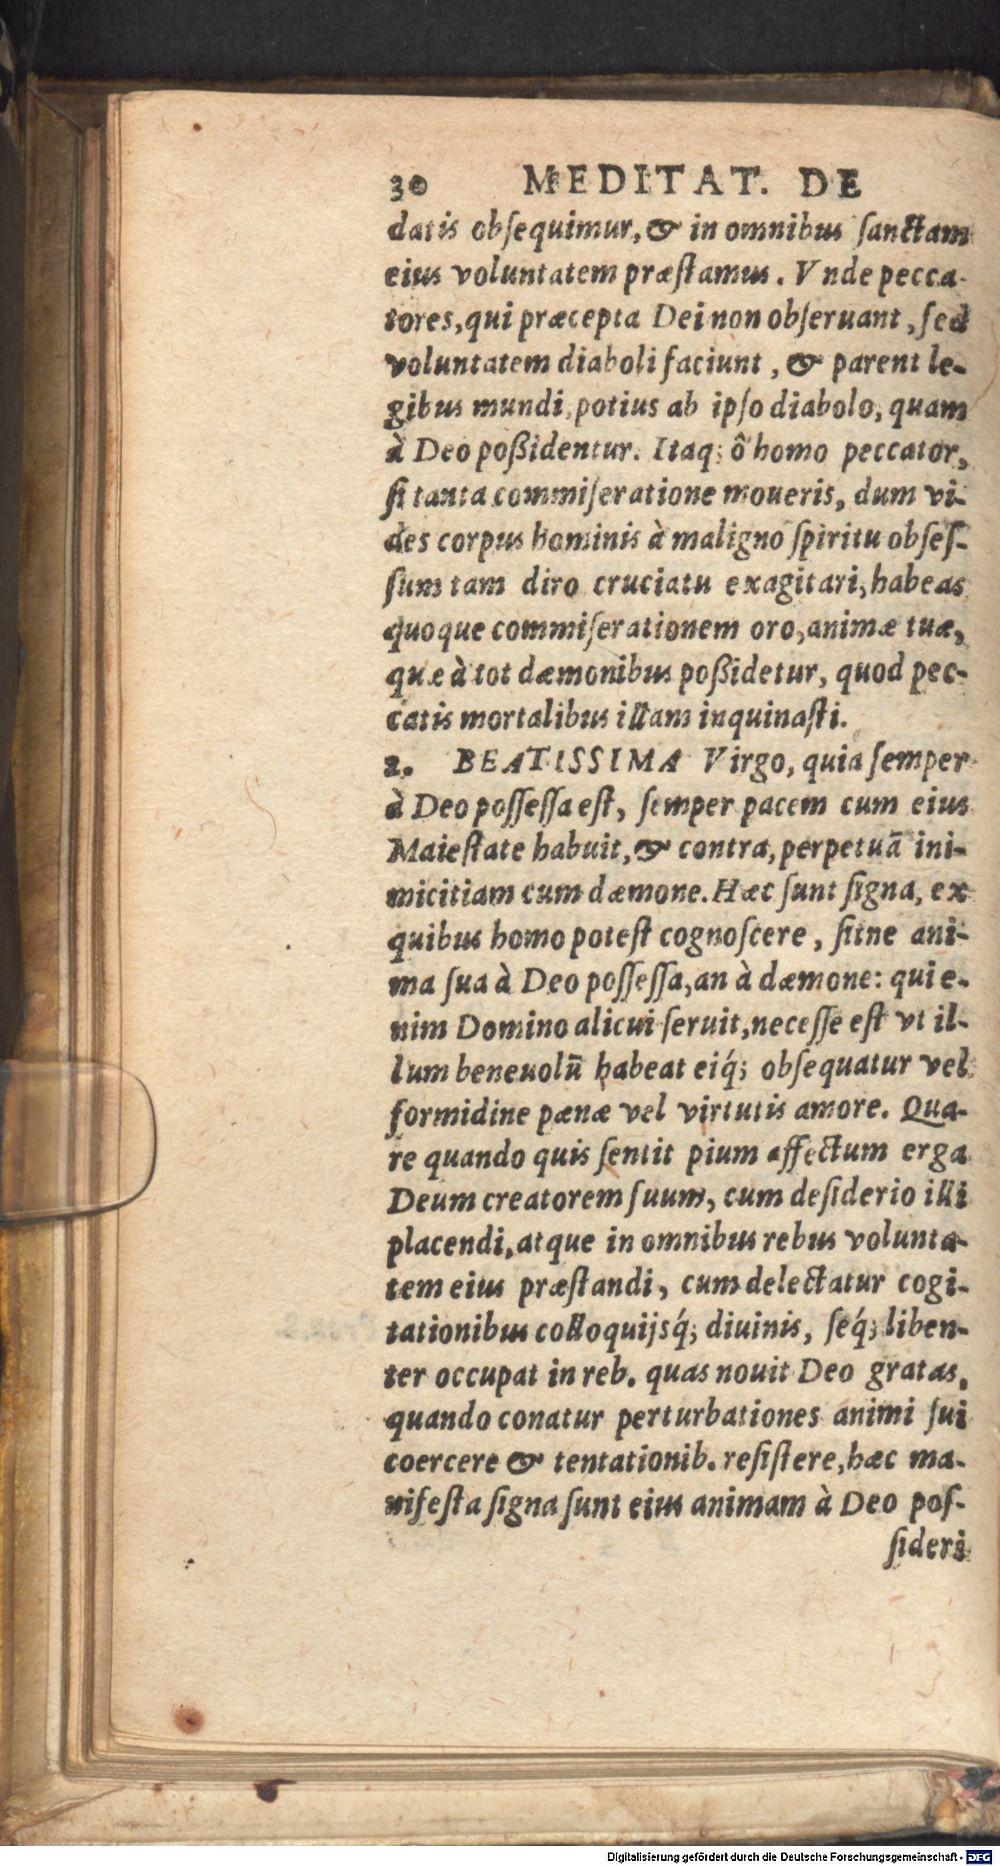 30 MEDITAT. DE
datis obſequimur, & in omnibus ſanctam
eius voluntatem præſtamus. Vnde pecca-
tores, qui præcepta Dei non obſeruant, ſed
voluntatem diaboli faciunt, & parent le-
gibus mundi, potius ab ipſo diabolo, quam
à Deo poßidentur. Itaq; ô homo peccator,
ſi tanta commiſeratione moueris, dum vi-
des corpus hominis à maligno ſpiritu obſeſ-
ſum tam diro cruciatu exagitari, habeas
quoque commiſerationem oro, animæ tuæ,
quæ à tot dæmonibus poßidetur, quod pec-
catis mortalibus illam inquinaſti.
2. BEATISSIMA Virgo, quia ſemper
à Deo poſſeſſa eſt, ſemper pacem cum eius
Maieſtate habuit, & contra, perpetuā ini-
micitiam cum dæmone. Hæc ſunt ſigna, ex
quibus homo poteſt cognoſcere, ſitne ani-
ma ſua à Deo poſſeſſa, an à dæmone: qui e-
nim Domino alicui ſeruit, neceſſe eſt vt il-
lum beneuolū habeat eiq́; obſequatur vel
formidine pænæ vel virtutis amore. Qua-
re quando quis ſentit pium affectum erga
Deum creatorem ſuum, cum deſiderio illi
placendi, atque in omnibus rebus volunta-
tem eius præſtandi, cum delectatur cogi-
tationibus colloquijsq́; diuinis, ſeq́; liben-
ter occupat in reb. quas nouit Deo gratas,
quando conatur perturbationes animi ſui
coercere & tentationib. reſiſtere, hæc ma-
nifeſta ſigna ſunt eius animam à Deo poſ-
ſideri
Digitalisierung gefördert durch die Deutsche Forschungsgemeinschaft - DFG